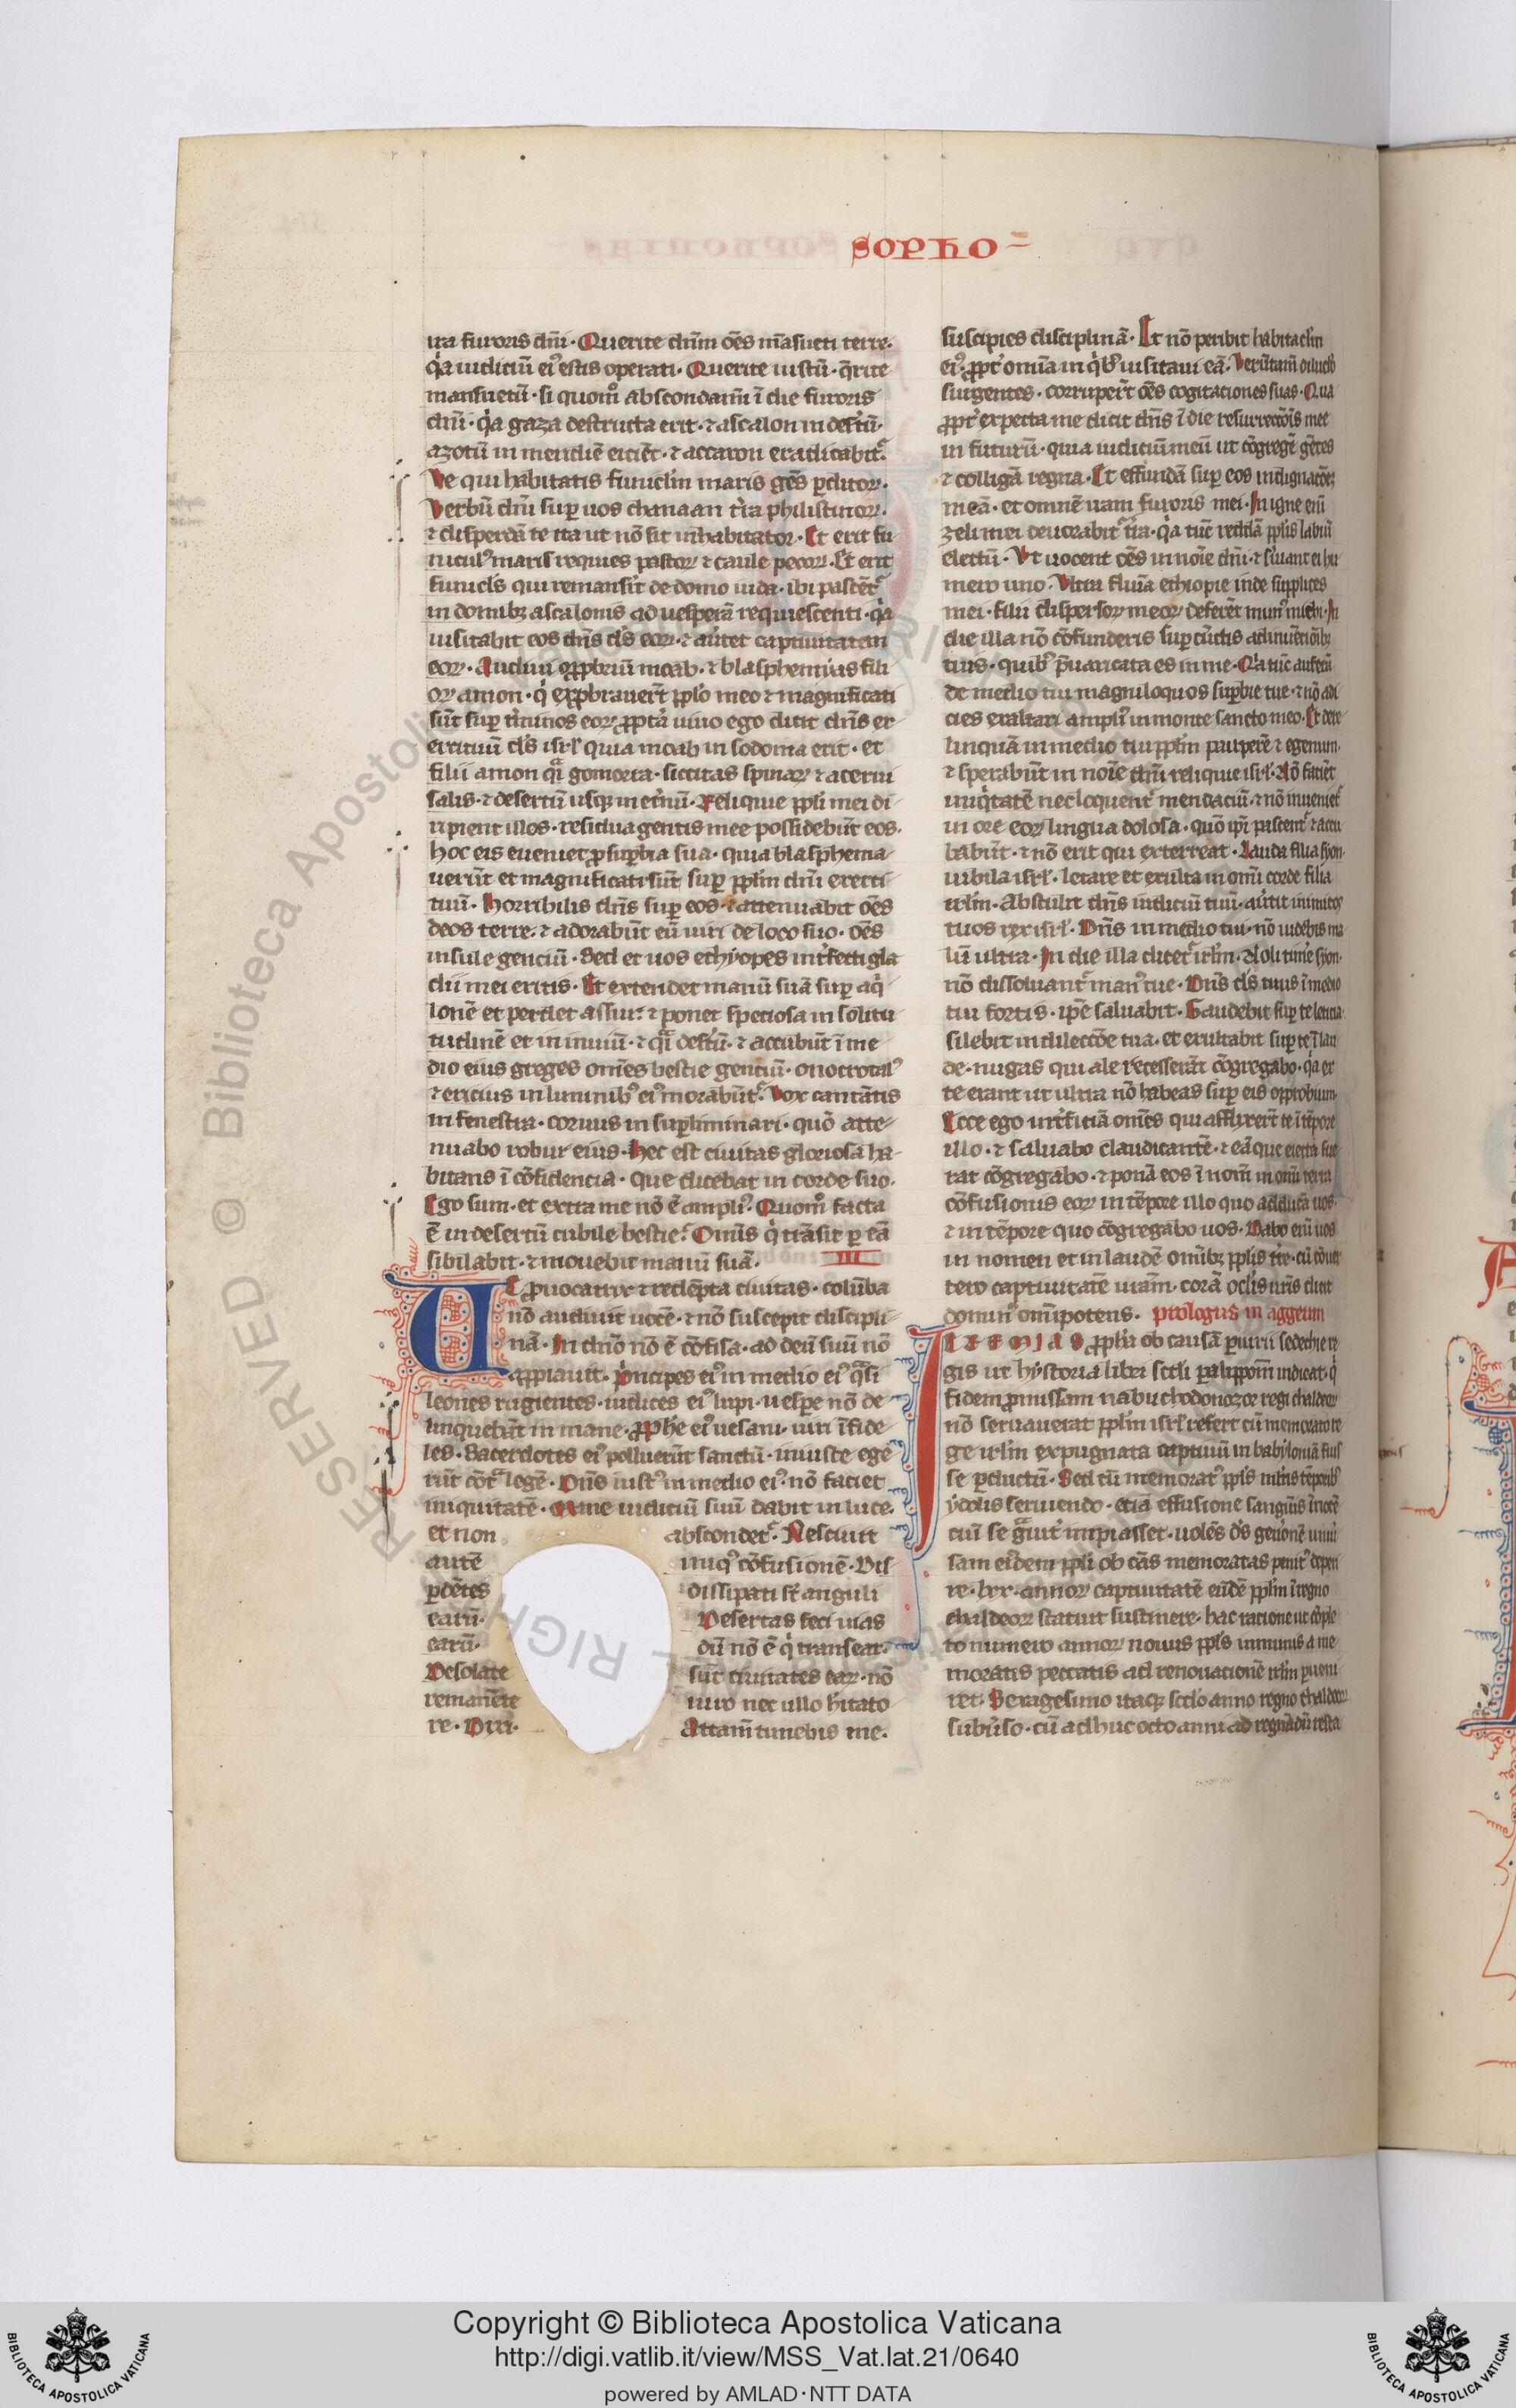 sopho
ira furoris dñi · Querite dñm oẽs mãsueti terre ·
qͥa iudiciũ ei᾽ estis operati · Querite iustũ · q̃rite
mansuetũ · si quomͦ abscondam̃ ĩ die furoris
dñi · qͥa gaza destructa erit · ⁊ ascalon in desᵗũ ·
azotũ in meridiẽ eiciẽt · ⁊ accaron eradicabit᷑ ·
Ve qui habitatis funicl'm maris gẽs ꝑditoꝝ ·
Verbũ dñi suꝑ uos chanaan tͥra philistinoꝝ ·
⁊ disperdã te ita ut nõ sit inhabitator · Et erit fu
nicul᾽ maris requies pastoꝝ ⁊ caule pecoꝝ · Et erit
funicl's qui remansit᷑ de domo iuda · ibi pascẽt᷑
in domibꝫ ascalonis ad uesperã requiescent · qͥa
uisitabit eos dñs d's eoꝝ · ⁊ au᷑tet captiuitatem
eoꝝ · Audiui oꝓpbriũ moab · ⁊ blasphemias fili
oꝝ amon · qͥ exꝓbrauer̃t ppl'o meo ⁊ magnificati
sũt suꝑ t᷑minos eoꝝ ꝓpt᷑a uiuo ego dicit dñs ex
ercituũ d's isrl' quia moab ut sodoma erit · et
filii amon qͣi gomorra · siccitas spinaꝝ ⁊ acerui
salis · ⁊ desertũ usqꝫ in et᷑nũ · Reliquie ppl'i mei di
ripient illos · residua gentis mee possidebũt eos ·
hoc eis eueniet ꝓ suꝑbia sua · quia blasphema
uerũt et magnificati sũt suꝑ ppl'm dñi exerci
tuũ · Horribilis dñs suꝑ eos · ⁊ attenuabit oẽs
deos terre · ⁊ adorabũt eũ uiri de loco suo · oẽs
insule genciũ · Sed et uos ethyopes int᷑fecti gla
dii mei eritis · Et extendet manũ suã suꝑ aqͥ
lonẽ et perdet assur · ⁊ ponet speciosa in solitu
tudinẽ et in inuiũ · ⁊ qͣi desᵗũ · ⁊ accubũt ĩ me
dio eius greges omẽs bestie genciũ · onocrotal᾽
⁊ ericius in liminib᾽ ei᾽ morabũt᷑ · Vox cantãtis
in fenestra · coruus in suꝑliminari · quõ atte
nuabo robur eius · Hec est ciuitas gloriosa ha
bitans ĩ cõfidencia · que dicebat in corde suo ·
Ego sum · et extra me nõ ẽ ampli᾽ · Quomͦ facta
ẽ in desertũ cubile bestie · Omĩs qͥ trãsit ꝑ eã
sibilabit · ⁊ mouebit manũ suã · III
Ue ꝓuocatrix ⁊ redẽpta ciuitas · colũba
nõ audiuit uocẽ · ⁊ nõ suscepit discipli
nã · In dño nõ ẽ cõfisa · ad deũ suũ nõ
appͥauit · Pͥncipes ei᾽ in medio ei᾽ qͣsi
leones rugientes · iudices ei᾽ lupi · uesꝑe nõ de
linquebãt in mane · ꝓphe ei᾽ uesani · uiri ĩfide
les · Sacerdotes ei᾽ polluerũt sanctũ · iniuste ege
rũt cõtͣ legẽ · Dñs iust᾽ in medio ei᾽ · nõ faciet
iniquitatẽ · Mane iudiciũ suũ dabit in luce ·
et non abscondet᷑ · Nesciuit
autẽ iniq᾽ cõfusionẽ · Dis
ꝑdẽtes dissipati sũt anguli
earũ · Desertas feci uias
earũ · dũ nõ ẽ qͥ transeat ·
Desolate sũt ciuitates eaꝝ · nõ
remanẽte uiro nec ullo hitato
re · Dixi · Attam̃ timebis me ·
suscipies disciplinã · Et nõ peribit habitacl'm
ei᾽ · ꝓpt᷑ omĩa in qͥb᾽ uisitaui eã · Verũtam̃ dilucl'o
surgentes · corruper̃t oẽs cogitaciones suas · Qua
ꝓpt᷑ expecta me dicit dñs ĩ die resurrecc̃õis mee
in futurũ · quia iudiciũ meũ ut cõgregẽ gẽtes
⁊ colligã regna · Et effundã suꝑ eos indignacõeꝫ
meã · et omnẽ iram furoris mei · In igne enĩ
zeli mei deuorabit᷑ tͥra · qͥa tũc reddã ppl'is labiũ
electũ · Vt uocent oẽs in noĩe dñi · ⁊ s᷑uiant ei hu
mero uno · Vltra flumĩa ethiopie inde supplices
mei · filii dispersoꝝ meoꝝ deferẽt mun᾽ michi · In
die illa nõ cõfunderis suꝑ cũctis adinuẽcionibꝫ
tuis · quib᾽ p̃uaricata es in me · Qͥa tũc auferã
de medio tui magniloquos suꝑbie tue · ⁊ nõ adi
cies exaltari ampli᾽ in monte sancto meo · Et dere
linquã in medio tui ppl'm pauperẽ ⁊ egenum ·
⁊ sperabũt in noĩe dñi reliquie isrl' · Nõ faciẽt
iniqͥtatẽ nec loquent᷑ mendaciũ · ⁊ nõ inueniet᷑
in ore eoꝝ lingua dolosa · quõ ip̃i pascent᷑ ⁊ accu
babũt · ⁊ nõ erit qui exterreat · Lauda filia syon ·
iubila isrl' · letare et exulta in omĩ corde filia
irl'm · Abstulit dñs iudiciũ tuũ · au᷑tit inimicos
tuos rex isrl' · Dñs in medio tui · nõ uidebis ma
lũ ultra · In die illa dicet᷑ irl'm · Noli timẽ syon ·
nõ dissoluant᷑ man᾽ tue · Dñs d's tuus ĩ medio
tui fortis · ip̃e saluabit · Gaudebit suꝑ te leticia ·
silebit in dileccõe tua · et exultabit suꝑ te ĩ lau
de · nugas qui a lege recesserãt cõgregabo · qͥa ex
te erant ut ultra nõ habeas suꝑ eis opprobrium ·
Ecce ego int᷑ficiã omẽs qui afflixer̃t te ĩ tẽpore
illo · ⁊ saluabo claudicantẽ · ⁊ eã que eiecta fue
rat cõgregabo · ⁊ ponã eos ĩ nom̃ in omĩ terra
cõfusionis eoꝝ in tẽpore illo quo adducã uos ·
⁊ in tẽpore quo cõgregabo uos · Dabo enĩ uos
in nomen et in laudẽ omĩbꝫ ppl'is tͥre · cũ cõuer
tero captiuitatẽ ur̃am · corã ocl'is ur̃is dicit
domin᾽ omĩpotens · prologus in aggeum
Ieremias ꝓph̃a ob causã ꝑiurii sedechie re
gis ut hystoria libri scd'i palippom̃ indicat · qͥ
fidem ꝓmissam nabuchodonozor regi chaldeoꝝ
nõ seruauerat ppl'm isrl' refert cũ memorato re
ge irl'm expugnata captiuũ in babyloniã fuis
se ꝑductũ · Sed cũ memorat᾽ ppl's nĩĩs tẽporib᾽
ydolis seruiendo · eciã effusione sanguĩs ĩnocẽ
cium se gͣuit᷑ impiasset · uolẽs d's gen᷑onẽ uniu᷑
sam ei᾽dem ppl'i ob cãs memoratas penit᾽ deperi
re · lxx · annoꝝ captiuitatẽ eũdẽ ppl'm ĩ regno
chaldeoꝝ statuit sustinere · hac racione ut cõple
to numero annoꝝ nouus ppl's inmunis a me
moratis peccatis ad renouacionẽ irl'm ꝑueni
ret · Sexagesimo itaqꝫ scd'o anno regno chaldeoꝝ
subũso · cũ adhuc octo anni ad regnãdũ resta
RESERVED © Biblioteca Apostolica
Copyright © Biblioteca Apostolica Vaticana
http://digi.vatlib.it/view/MSS_Vat.lat.21/0640
powered by AMLAD·NTT DATA
BIBLIOTECA APOSTOLICA VATICANA
BIBLIOTECA APOSTOLICA VATICANA